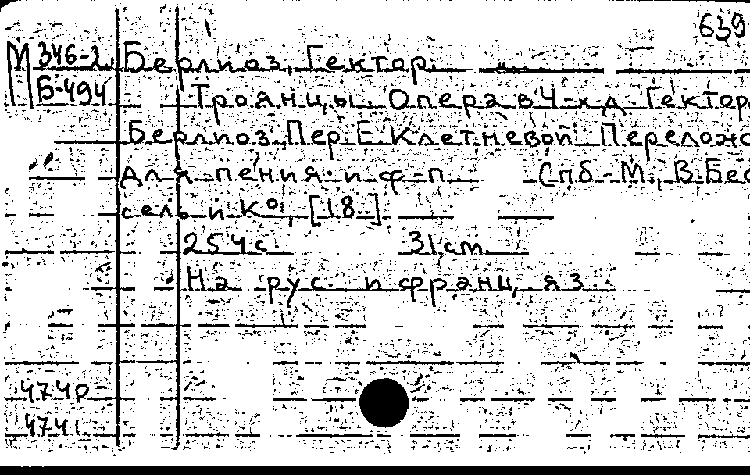 639
М 346-2 Берлиоз, Гектор.
Б-494
Троянцы. Опера в 4-х д. Гектор
Берлиоз. Пер. Е. Клетневой. Перелож
для пения и ф-п. Спб.-М., В. Бес
сель и К°, [18 ].
254 с. 31 см.
На рус. и франц. яз.
4740
4741